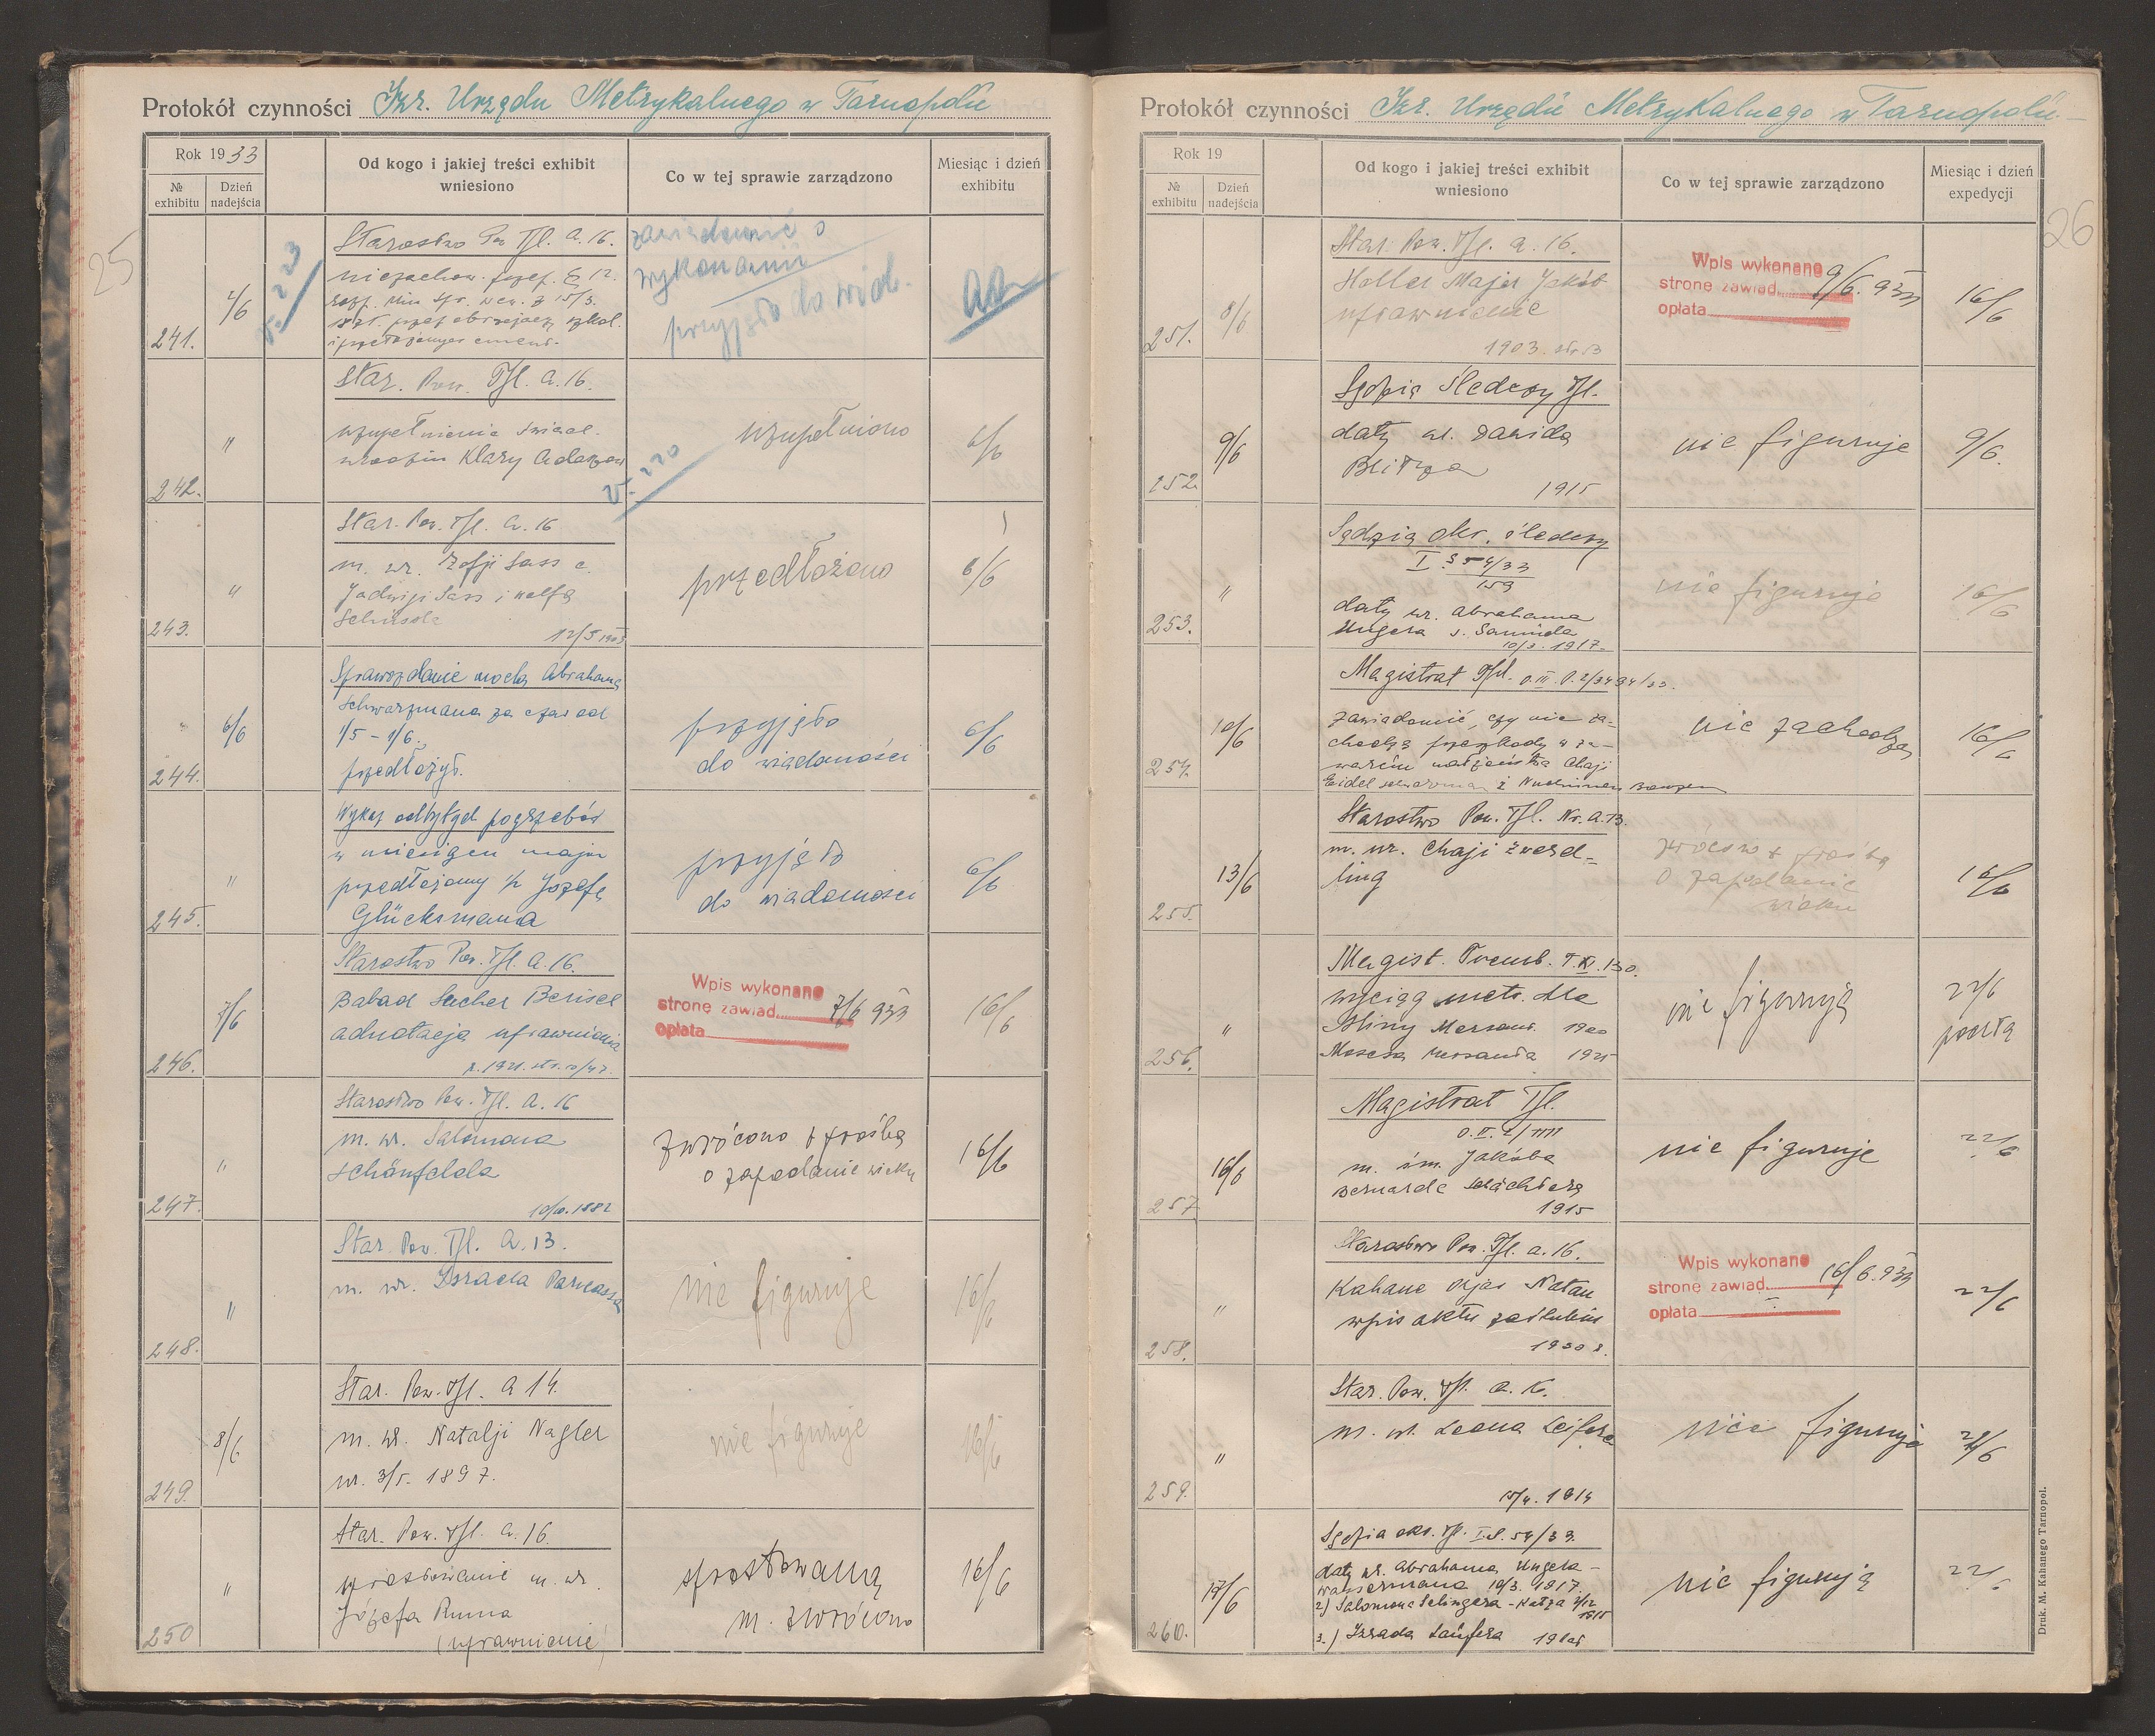 Protokół czynności Izr. Urzędu Metrykalnego w Tarnopolu
25
Rok 1933
№ exhibitu
Dzień nadejścia
Od kogo i jakiej treści exhibit wniesiono
Co w tej sprawie zarządzono
Miesiąc i dzień exhibitu
241.
Starostwo Pow. Tpl. A. 16.
zawiadomić o
wykonaniu
aa
242.
"
Star. Pow. Tpl. A. 16.
uzupełnienie świad.
urodzin Klary
uzupełniono
6/6
243.
"
Star. Pow. Tpl. A. 16
m. ur. Zofji Sass c.
Jadwigi Sass i
przedłożono
6/6
244.
6/6
Sprawozdanie mocla Abrahama
Schwarzmana za czas od
1/5 - 1/6.
przedłożył.
przyjęto
do wiadomości
6/6
245.
"
Wykaz odbytych pogrzebów
w miesiącu maju
przedłożony p. Józefa
Glücksmana
przyjęto
do wiadomości
6/6
246.
7/6
Starostwo Pow. Tpl. A. 16.
Babad Sucher Berisch
adnotacja uprawnienia
Wpis wykonano
stronę zawiad. 7/6 933
opłata
16/6
247.
"
Starostwo Pow. Tpl. A. 16
m. ur. Salomona
Schönfelda
1882
zwrócono z prośbą
o zapodanie wieku
16/6
248.
"
Star. Pow. Tpl. A. 13.
m. ur. Israela Parnassa
nie figuruje
16/6
249.
8/6
Star. Pow. Tpl. A 14.
m. ur. Natalji Nagler
ur. 3/5. 1897.
nie figuruje
16/6
250
"
Star. Pow. Tpl. A. 16.
sprostowanie m. ur.
Józefa
(uprawnienie)
sprostowaną
m. zwrócono
16/6
Protokół czynności Izr. Urzędu Metrykalnego w Tarnopolu
26
Rok 19
№ exhibitu
Dzień nadejścia
Od kogo i jakiej treści exhibit wniesiono
Co w tej sprawie zarządzono
Miesiąc i dzień expedycji
251.
8/6
Star. Pow. Tpl. A. 16.
Holler Majer Jakób
uprawnienie
1903
Wpis wykonano
stronę zawiad. 9/6. 933
opłata
16/6
252.
9/6
Sędzia Śledczy Tpl.
daty ur. Dawida
1915
nie figuruje
9/6.
253.
"
Sędzia okr. śledczy
daty ur. Abrahama
Ungera s.
10/3. 1917.
nie figuruje
16/6
254.
10/6
Magistrat Tpl.
zawiadomić, czy nie za-
chodzą przeszkody w za-
warciu małżeństwa Chaji
nie zachodzą
16/6
255.
13/6
Starostwo Pow. Tpl. Nr. A. 13.
m. ur. Chaji Zwerd-
ling
zwrócono z prośbą
o zapodanie
wieku
16/6
256.
"
Magist. Tremb. T. XI. 130.
wyciąg metr. dla
1900
1925
nie figurują
22/6
pocztą
257.
16/6
Magistrat Tpl.
m. śm. Jakóba
Bernarda Schächtera
1915
nie figuruje
22/6
258.
"
Starostwo Pow. Tpl. A. 16.
Kahane Ozjas Natan
wpis aktu zaślubin
1930 r.
Wpis wykonano
stronę zawiad. 16/6. 933
opłata
22/6
259.
"
Star. Pow. Tpl.
m. ur. Leona Leifera
nie figuruje
22/6
260.
17/6
Sędzia okr. Tpl. I. S. 54/33.
daty ur. Abrahama Ungera-
Wassermana 10/3. 1917.
2) Salomona Selingera - Katza
3.) Izraela Laufera
nie figurują
22/6
Druk. M. Kahanego Tarnopol.